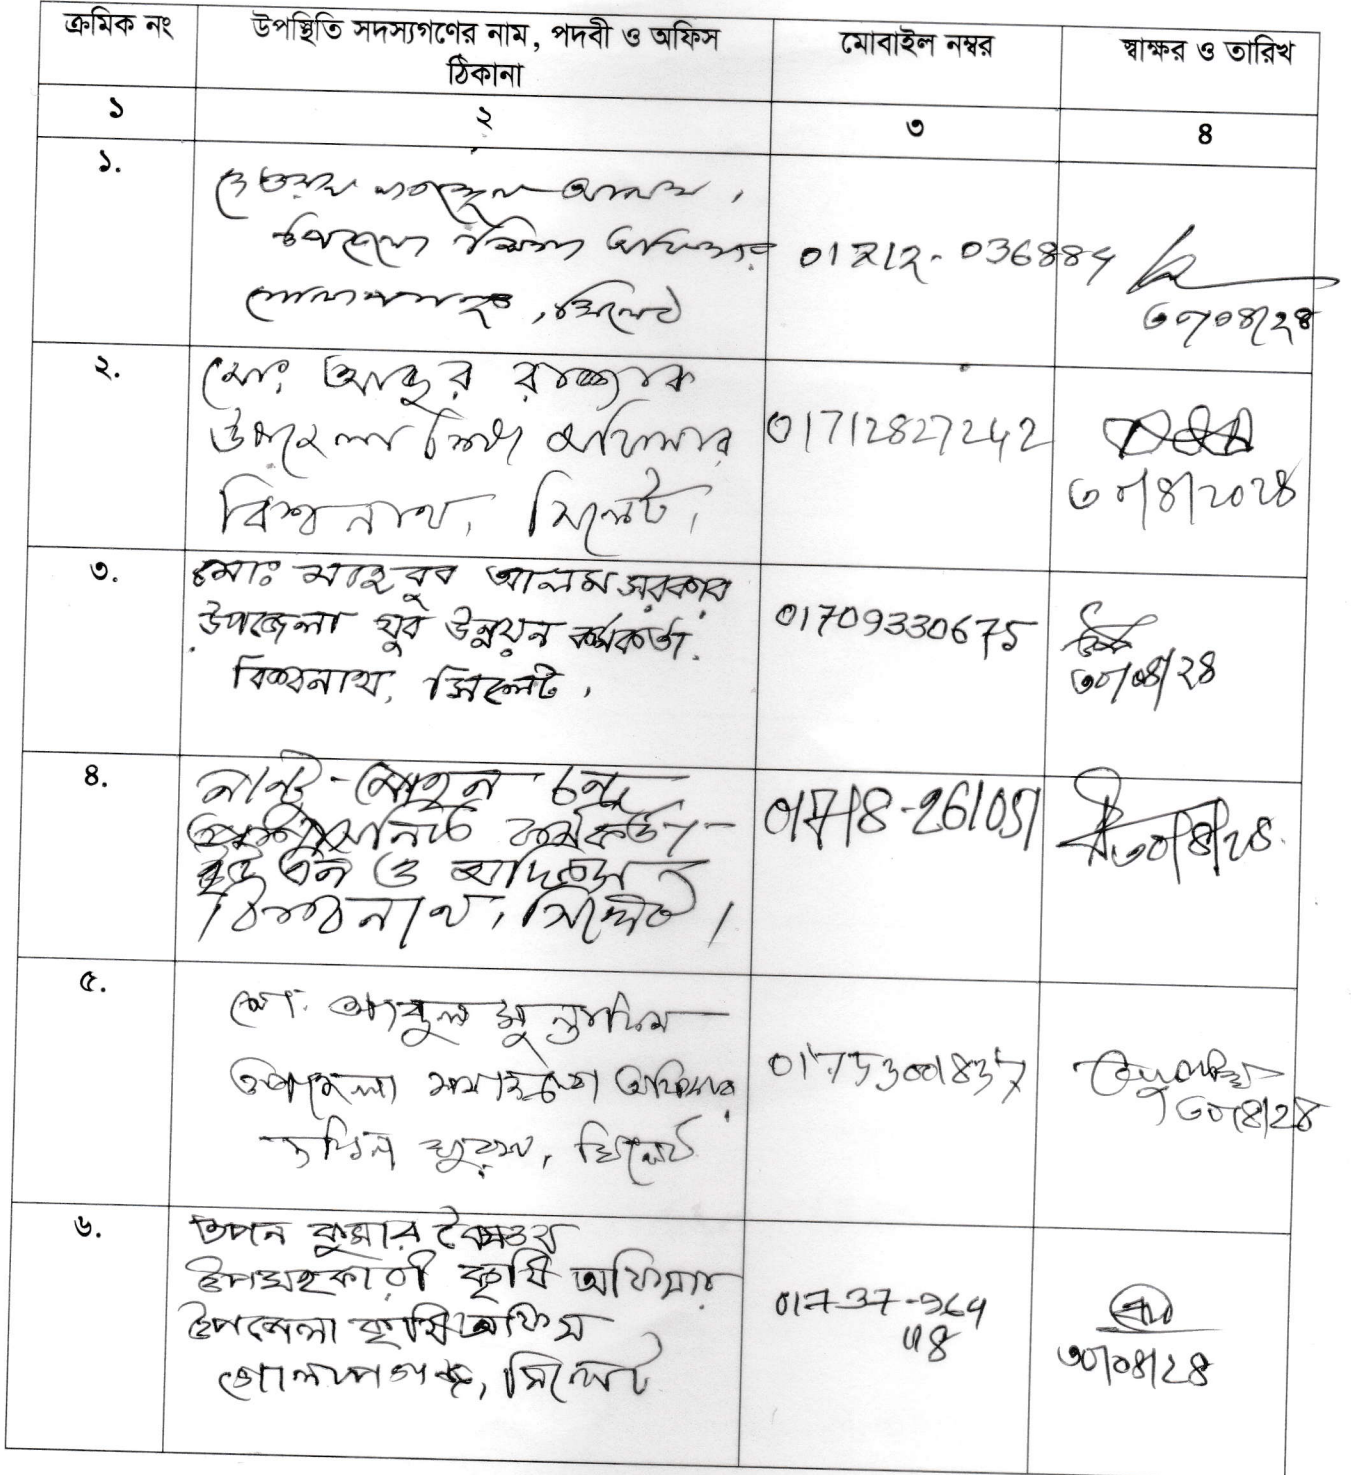 ক্রমিক নং
উপস্থিতি সদস্যগণের নাম, পদবী ও অফিস
ঠিকানা
মোবাইল নম্বর
স্বাক্ষর ও তারিখ
১
২
৩
৪
১.
আলম,
উপজেলা শিক্ষা অফিসার
গোলাপগঞ্জ, সিলেট
01712-036884
৩০/০৪/২৪
২.
মোঃ আব্দুর রাজ্জাক
উপজেলা শিক্ষা অফিসার
বিশ্বনাথ, সিলেট।
01712827242
৩০/৪/২০২৪
৩.
মোঃ মাহবুব আলম সরকার
উপজেলা যুব উন্নয়ন কর্মকর্তা
বিশ্বনাথ, সিলেট,
01709330675
৩০/০৪/২৪
৪.
মোহন চন্দ্র
কর্মকর্তা
ও
বিশ্বনাথ, সিলেট।
01718-261051
৩০/৪/২৪
৫.
মো: আবুল মুন্তাকিম
উপজেলা সমাজসেবা অফিসার
সিলেট
01753001837
৩০/৪/২৪
৬.
তপন কুমার বৈষ্ণব
উপসহকারী কৃষি অফিসার
উপজেলা কৃষি অফিস
গোলাপগঞ্জ, সিলেট
01737-964
৩০/০৪/২৪